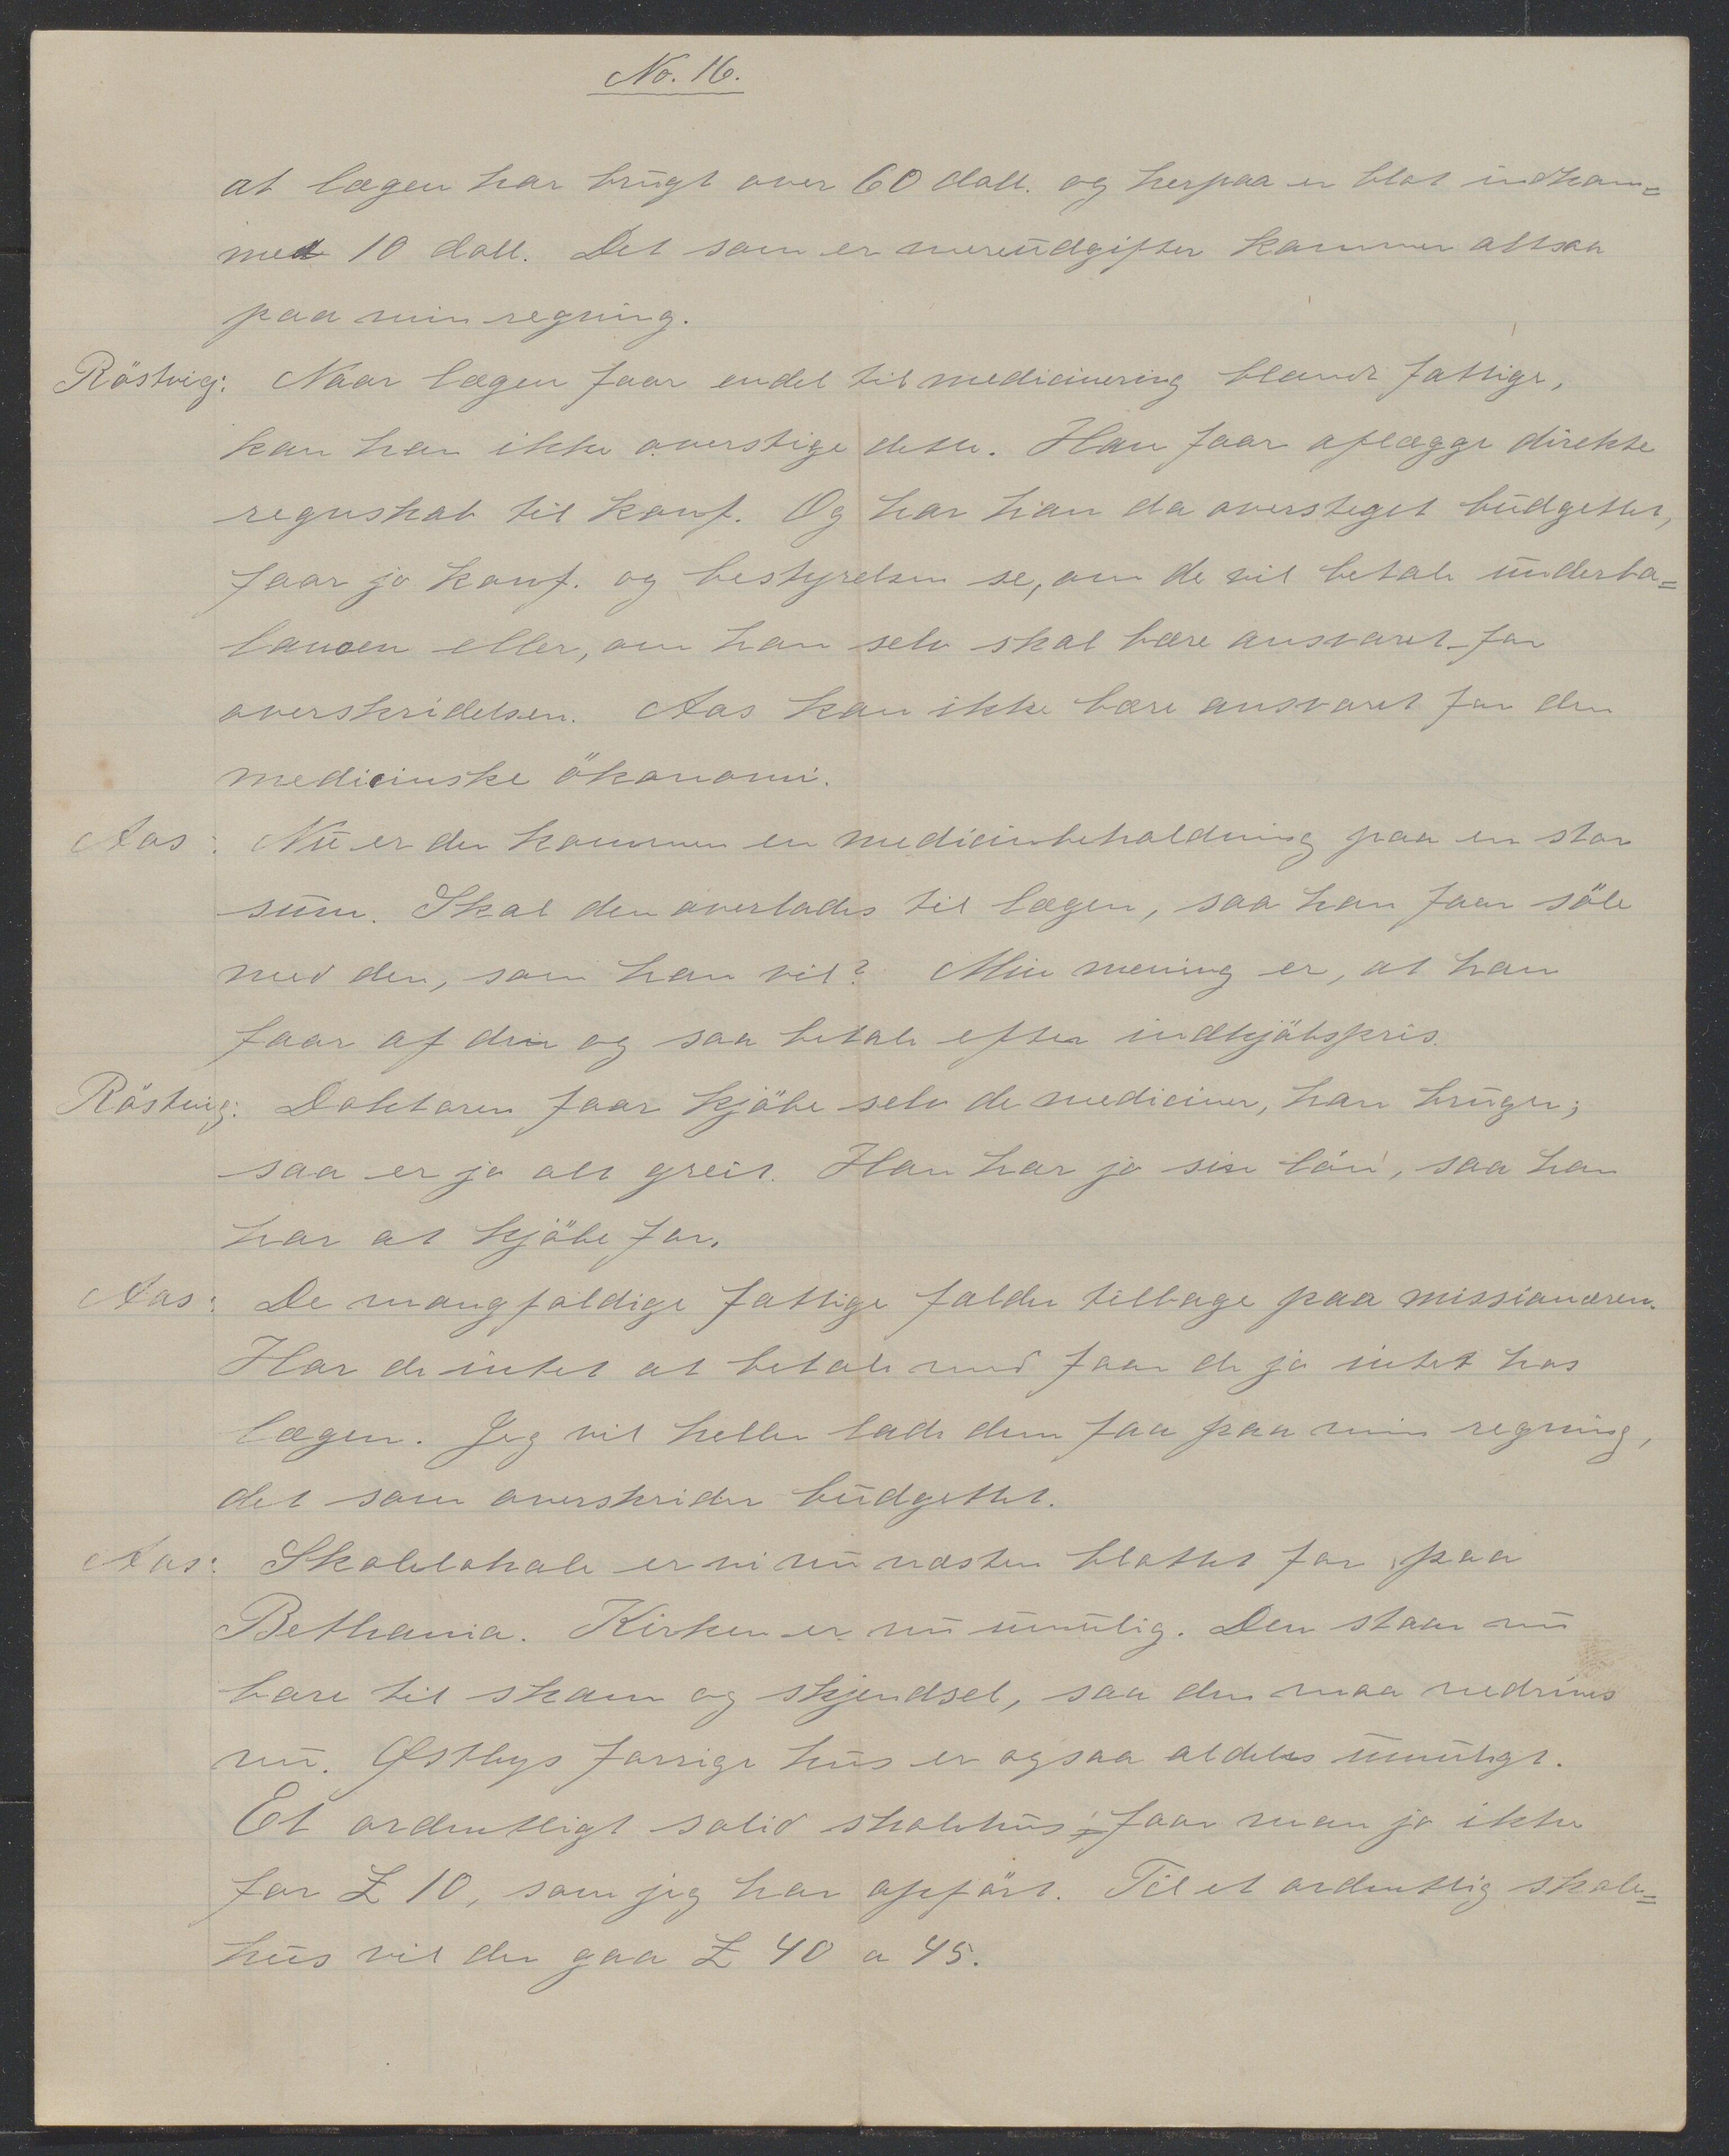 No. 16.
at lægen har brugt over 60 doll. og herpaa er blot indkom=
met 10 doll. Det som er mereudgifter kommer altsaa
paa min regning.
Röstvig: Naar lægen faar endel til medicinering blandt fattige,
kan han ikke overstige dette. Han faar aflægge direkte
regnskab til konf. Og har han da oversteget budgettet,
faar jo konf. og bestyrelsen se, om de vil betale underba=
lancen eller, om han selv skal bære ansvaret for
overskridelsen. Aas kan ikke bære ansvaret for den
medicinske ökonomi.
Aas: Nu er der kommen en medicinbeholdning paa en stor
sum. Skal den overlades til lægen, saa han faar söle
med den, som han vil? Min mening er, at han
faar af den og saa betale efter indkjöbspris.
Röstvig: Doktoren faar kjöbe selv de mediciner, han bruger;
saa er jo alt greit. Han har jo sin lön, saa han
har at kjöbe for.
Aas: De mangfoldige fattige falder tilbage paa missionæren.
Har de intet at betale med faar de jo intet hos
lægen. Jeg vil heller lade dem faa paa min regning,
det som overskrider budgettet.
Aas: Skolelokale er vi nu næsten blottet for paa
Bethania. Kirken er nu umulig. Den staar nu
bare til skam og skjendsel, saa den maa nedrives
nu. Østbys forrige hus er ogsaa aldeles umuligt.
Et ordentligt solid skolehus faar man jo ikke
for £ 10, som jeg har opfört. Til et ordentlig skole=
hus vil der gaa £ 40 a 45.